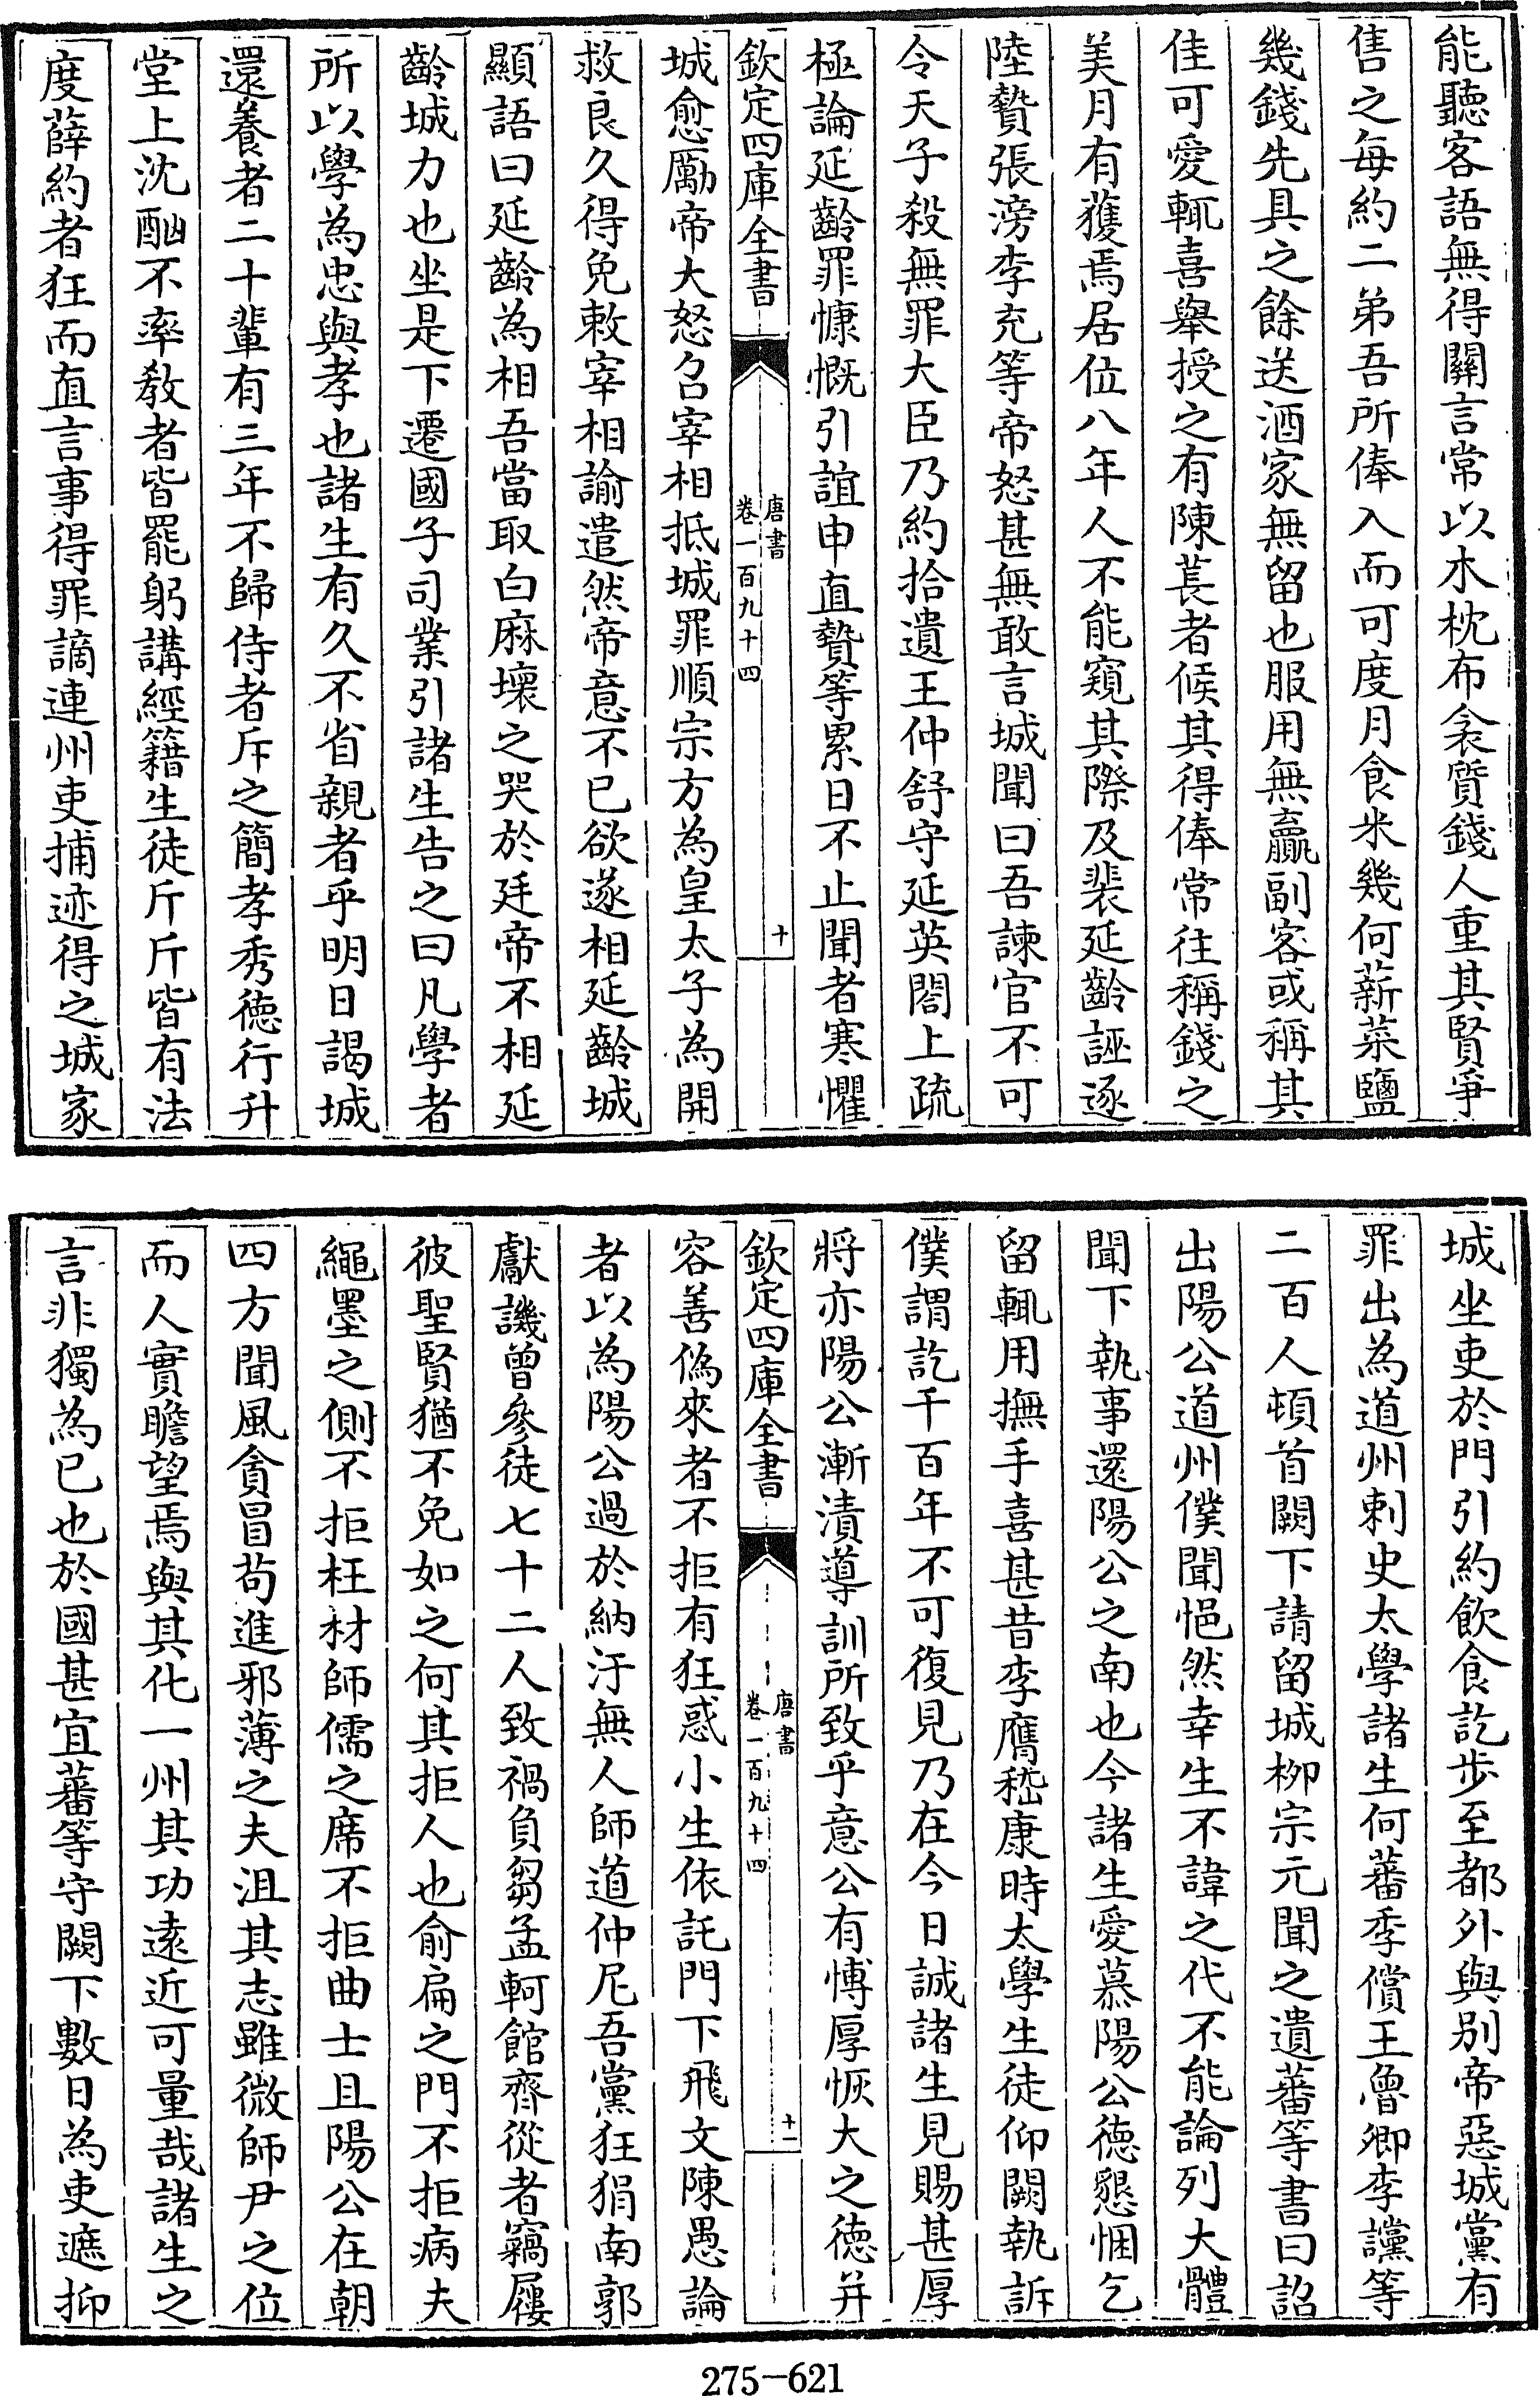 能聽客語無得關言常以木枕布衾質錢人重其賢爭
售之每約二弟吾所俸入而可度月食米幾何薪菜鹽
幾錢先具之餘送酒家無留也服用無贏副客或稱其
佳可愛輒喜舉授之有陳萇者候其得俸常往稱錢之
美月有獲焉居位八年人不能窺其際及裴延齡誣逐
陸贄張滂李充等帝怒甚無敢言城聞曰吾諫官不可
令天子殺無罪大臣乃約拾遺王仲舒守延英閤上疏
極論延齡罪慷慨引誼申直贄等累日不止聞者寒懼
欽定四庫全書
唐書
卷一百九十四
十
城愈勵帝大怒召宰相抵城罪順宗方為皇太子為開
救良久得免敕宰相諭遣然帝意不已欲遂相延齡城
顯語曰延齡為相吾當取白麻壞之哭於廷帝不相延
齡城力也坐是下遷國子司業引諸生告之曰凡學者
所以學為忠與孝也諸生有久不省親者乎明日謁城
還養者二十輩有三年不歸侍者斥之簡孝秀德行升
堂上沈酗不率教者皆罷躬講經籍生徒斤斤皆有法
度薛約者狂而直言事得罪謫連州吏捕迹得之城家
城坐吏於門引約飲食訖步至都外與別帝惡城黨有
罪出為道州刺史太學諸生何蕃季償王魯卿李讜等
二百人頓首闕下請留城柳宗元聞之遺蕃等書曰詔
出陽公道州僕聞悒然幸生不諱之代不能論列大體
聞下執事還陽公之南也今諸生愛慕陽公德懇悃乞
留輒用撫手喜甚昔李膺嵇康時太學生徒仰闕執訴
僕謂訖千百年不可復見乃在今日誠諸生見賜甚厚
將亦陽公漸漬導訓所致乎意公有博厚恢大之德并
欽定四庫全書
唐書
卷一百九十四
十一
容善偽來者不拒有狂惑小生依託門下飛文陳愚論
者以為陽公過於納汙無人師道仲尼吾黨狂狷南郭
獻譏曾參徒七十二人致禍負芻孟軻館齊從者竊屨
彼聖賢猶不免如之何其拒人也俞扁之門不拒病夫
繩墨之側不拒枉材師儒之席不拒曲士且陽公在朝
四方聞風貪冒苟進邪薄之夫沮其志雖微師尹之位
而人實瞻望焉與其化一州其功遠近可量哉諸生之
言非獨為已也於國甚宜蕃等守闕下數日為吏遮抑
275-621